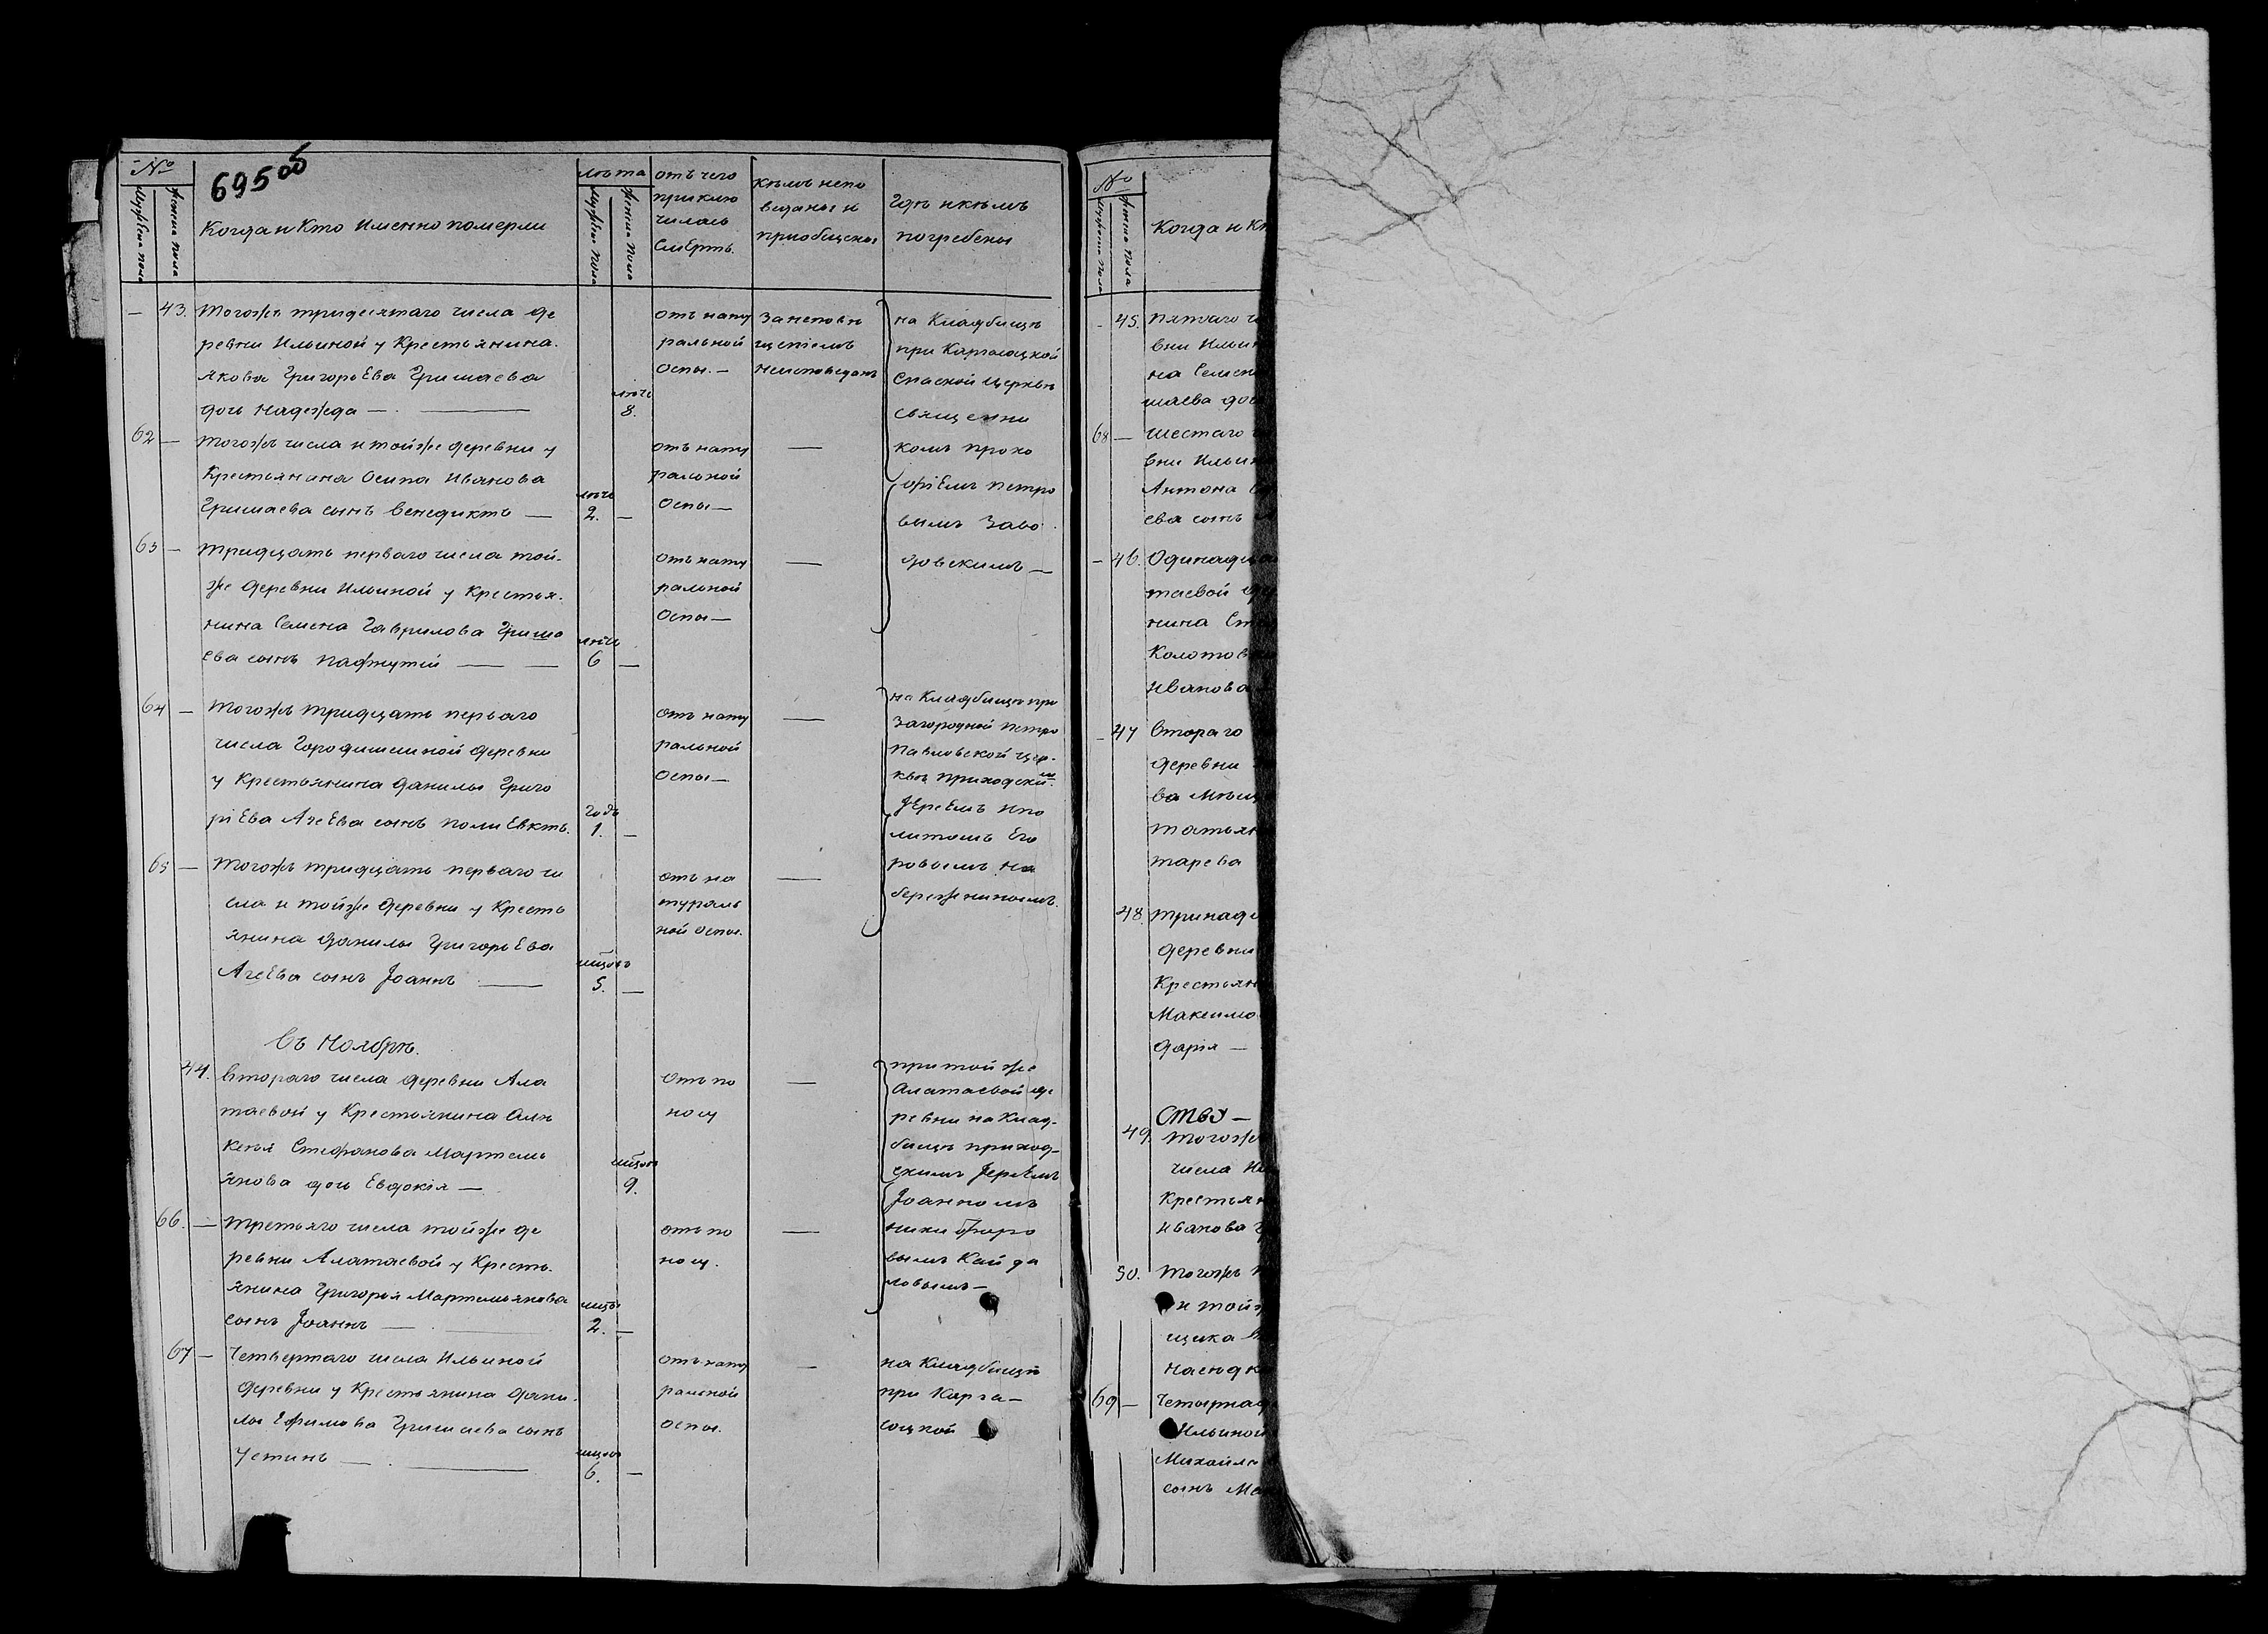 695 об
№
Мужеска пола
Женска пола
Когда и Кто Именно померли
Лѣта
Мужеска пола
Женска пола
отъ чего
приклю
чилась
Смерть.
Кѣмъ испо
веданы и
приобщены
Гдѣ и кѣмъ
погребены
— 43. Тогожъ тридесятаго числа де
ревни Ильиной у Крестьянина
Якова Григорьева Гришаева
дочь Надежда —
лѣтъ
8.
отъ нату
ральной
Оспы. —
За неповѣ
щеніемъ
неисповеданъ
на Кладбищѣ
при Каргасоцкой
Спаской Церкви
Священни
комъ Проко
фіемъ Петро
вымъ Заво
довскимъ —
62 — Тогожъ числа и тойже деревни у
Крестьянина Осипа Иванова
Гришаева сынъ Венедиктъ —
лѣтъ
2. —
отъ нату
ральной
Оспы —
—
63 — Тридцать перваго числа той
же деревни Ильиной у Крестья
нина Семена Гаврилова Гриша
ева сынъ Пафнутій —
лѣтъ
6 —
отъ нату
ральной
Оспы —
—
64 — Тогожъ тридцать перваго
числа Городишенской деревни
у Крестьянина Данилы Григо
рІева Агеева сынъ ПолиЕвктъ.
Годъ
1. —
отъ нату
ральной
Оспы —
—
на Кладбищѣ при
Загородной Петро
Павловской Цер
кви приходским
Іереемъ Ипо
литомъ Его
ровымъ На
бережнинымъ.
65 — Тогожъ тридцать перваго чи
сла и тойже деревни у Кресть
янина Данилы Григорьева
Агеева сынъ Іоаннъ —
мцовъ
5. —
отъ на
тураль
ной Оспы.
—
Въ Ноябрѣ.
44. Втораго числа деревни Ала
таевой у Крестьянина
Стефанова Мартемь
янова дочь Евдокія —
мцовъ
9.
отъ по
носу
—
при тойже
Алатаевой де
ревни на Клад
бищѣ приход
скимъ Іереемъ
Іоанномъ
Никифоро
вымъ Кайда
ловымъ —
66. — Третьяго числа тойже де
ревни Алатаевой у Кресть
янина Григорья Мартемьянова
сынъ Іоаннъ —
мцы
2. —
отъ по
носу.
—
67 — Четвертаго числа Ильиной
деревни у Крестьянина Дани
лы Ефимова Гришаева сынъ
Устинъ —
мцовъ
6. —
отъ нату
ральной
оспы.
—
на Кладбищѣ
при Карга —
соцкой
№
Мужеска пола
Женска пола
Когда и К
— 45. Пятаго
вни Ильи
на Семен
шаева до
68 — Шестаго
вни Ильин
Антона
ева сынъ
— 46. Одинадца
таевой
нина
Колотов
Иванова
— 47 Втораго
деревни
ва Мѣщ
Татьян
тарева
48. Тринадц
деревни
Крестьян
Максимо
Дарія —
СТВУ —
49. Тогоже
числа
Крестьян
Иванова
50. Тогожъ
и той
щика
69 — Четырнад
Ильиной
Михайла
сынъ